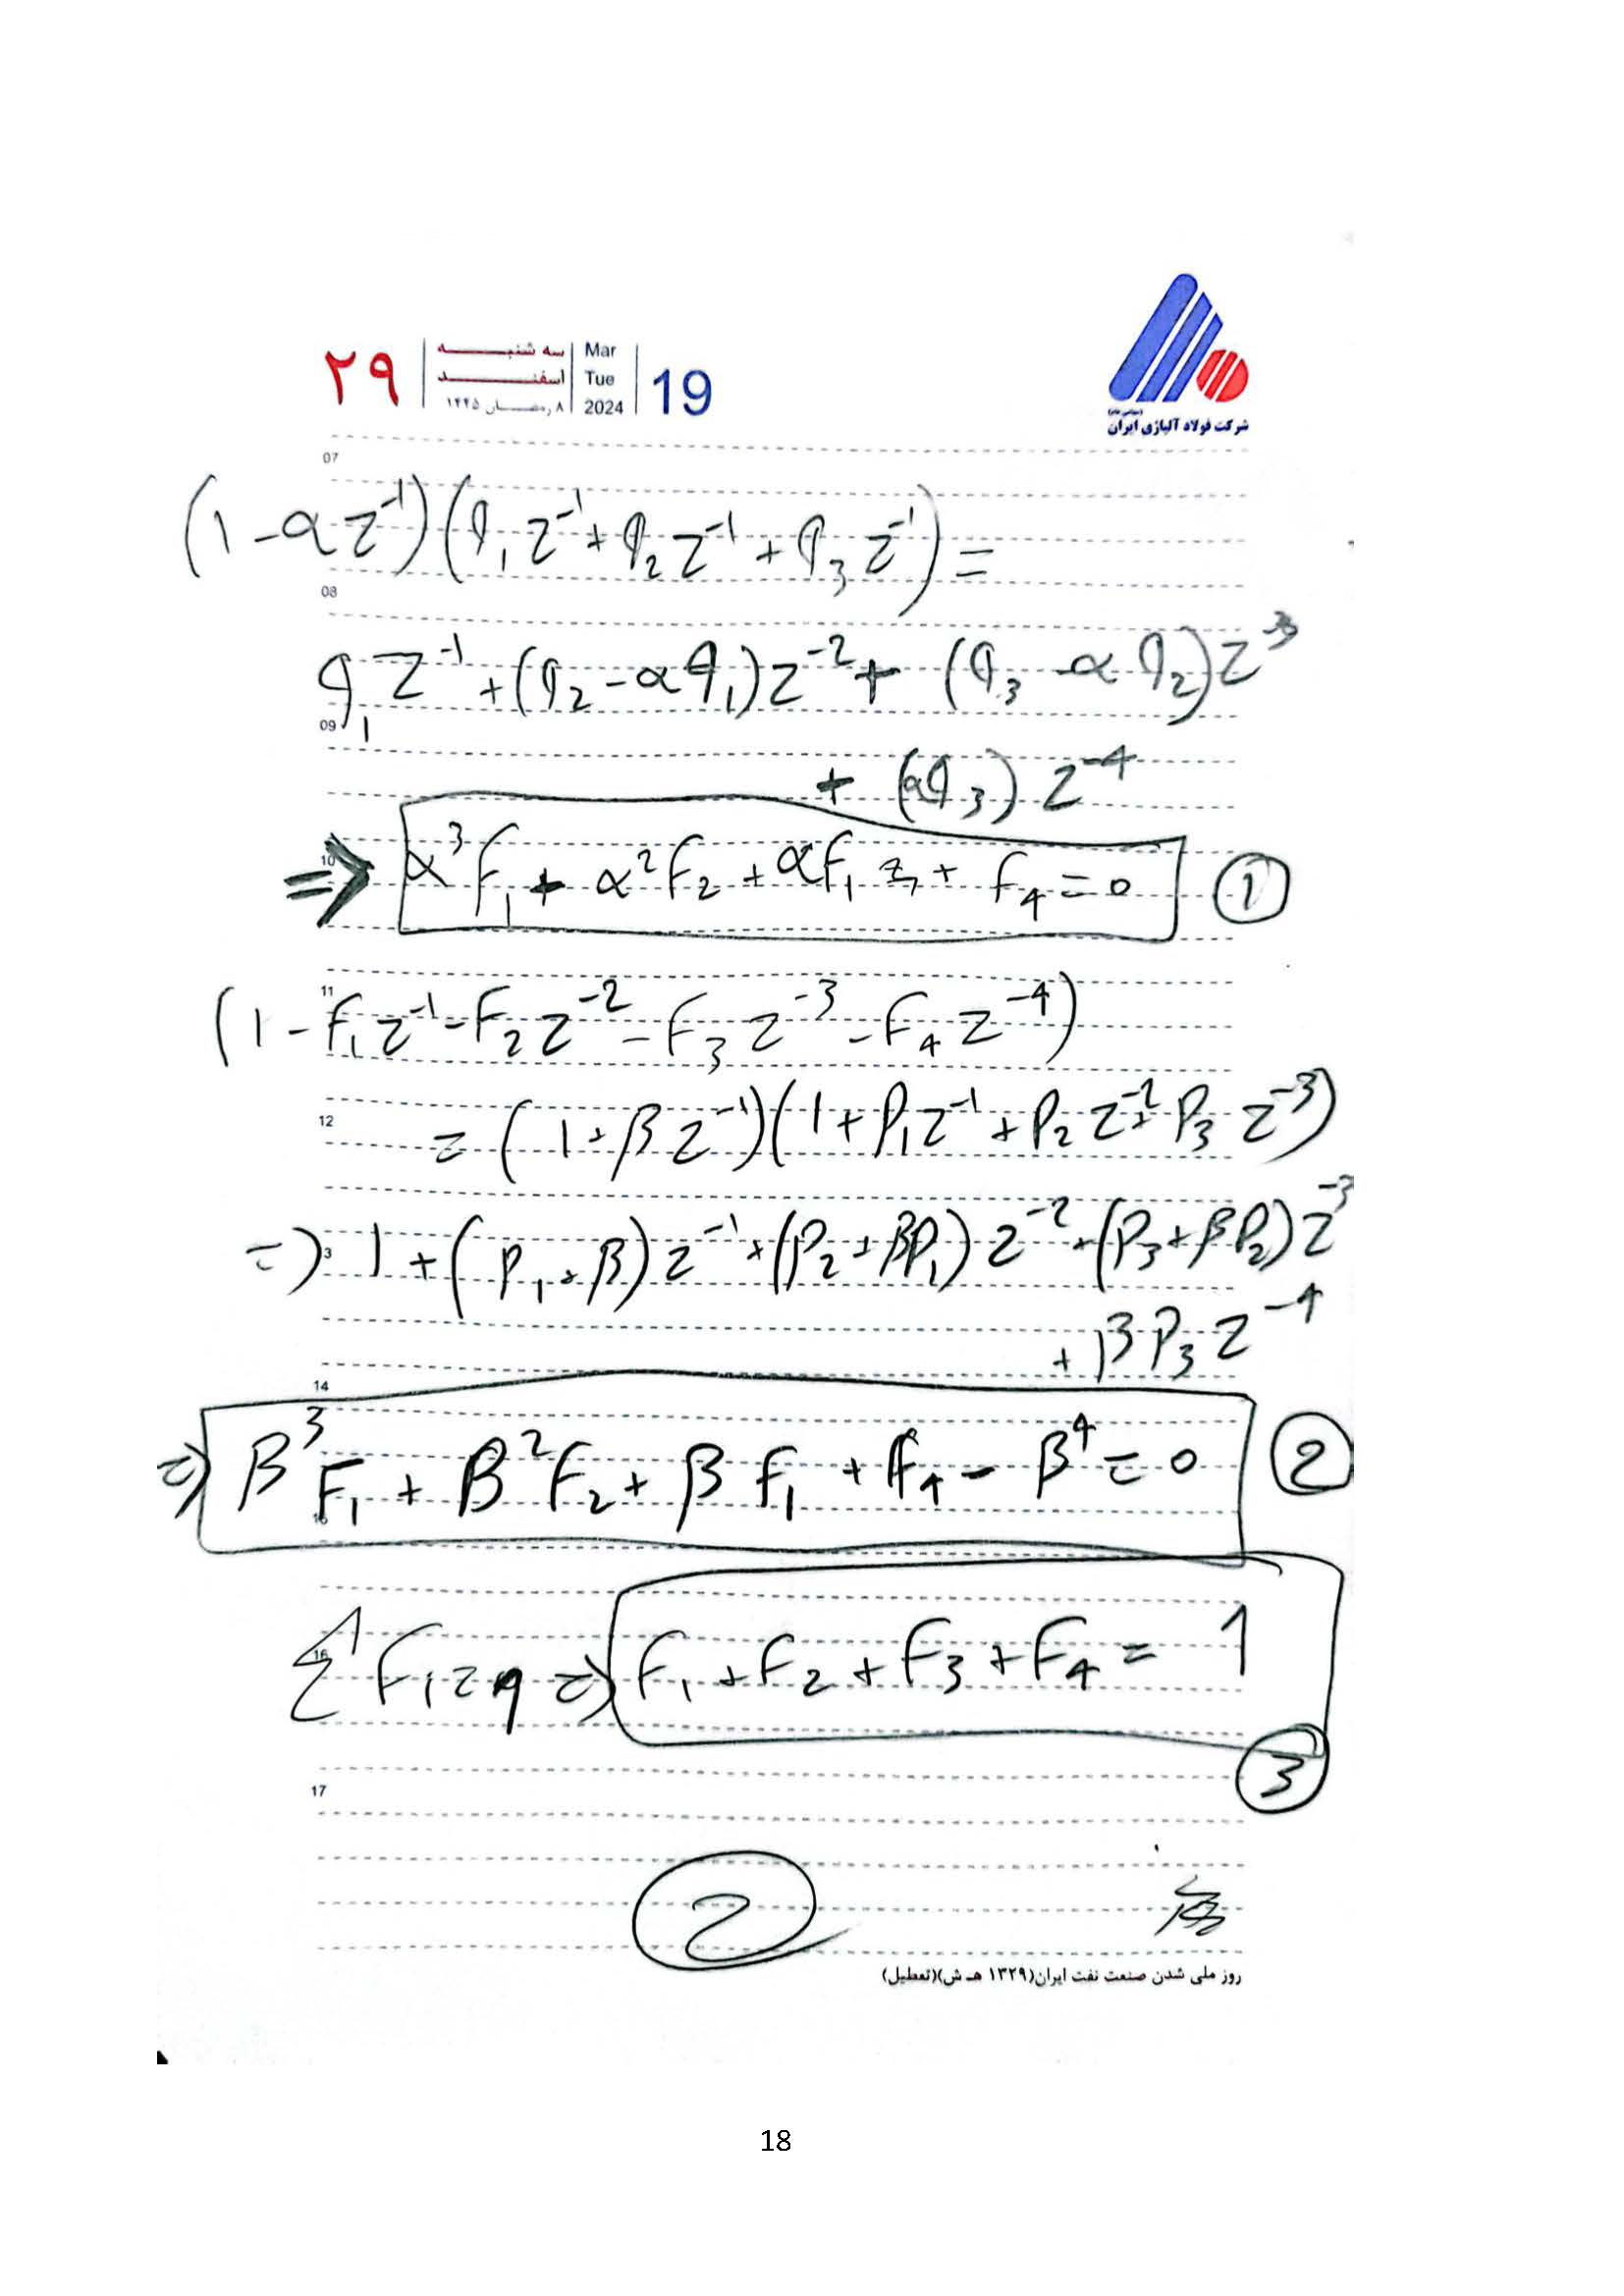 ۲۹ سه شنبه اسفند ۸ رمضان ۱۴۴۵ Mar Tue 2024 19
(سهامی عام)
شرکت فولاد آلیاژی ایران
07
(1 - αz⁻¹)(q₁z⁻¹ + q₂z⁻¹ + q₃z⁻¹) =
08
q₁z⁻¹ + (q₂ - αq₁)z⁻² + (q₃ - αq₂)z⁻³
09
+ (αq₃) z⁻⁴
10
⇒ α³F₁ + α²F₂ + αF₁ z₁ + F₄ = 0 ①
11
(1 - F₁z⁻¹ - F₂z⁻² - F₃z⁻³ - F₄z⁻⁴)
12
= (1 + βz⁻¹)(1 + P₁z⁻¹ + P₂z⁻² + P₃z⁻³)
3
⇒ 1 + (P₁ + β)z⁻¹ + (P₂ + βP₁)z⁻² + (P₃ + βP₂)z⁻³
+ βP₃z⁻⁴
14
⇒ β³F₁ + β²F₂ + βF₁ + F₄ - β⁴ = 0 ②
16
F₁ + F₂ + F₃ + F₄ = 1
③
17
②
روز ملی شدن صنعت نفت ایران(۱۳۲۹ هـ ش)(تعطیل)
18